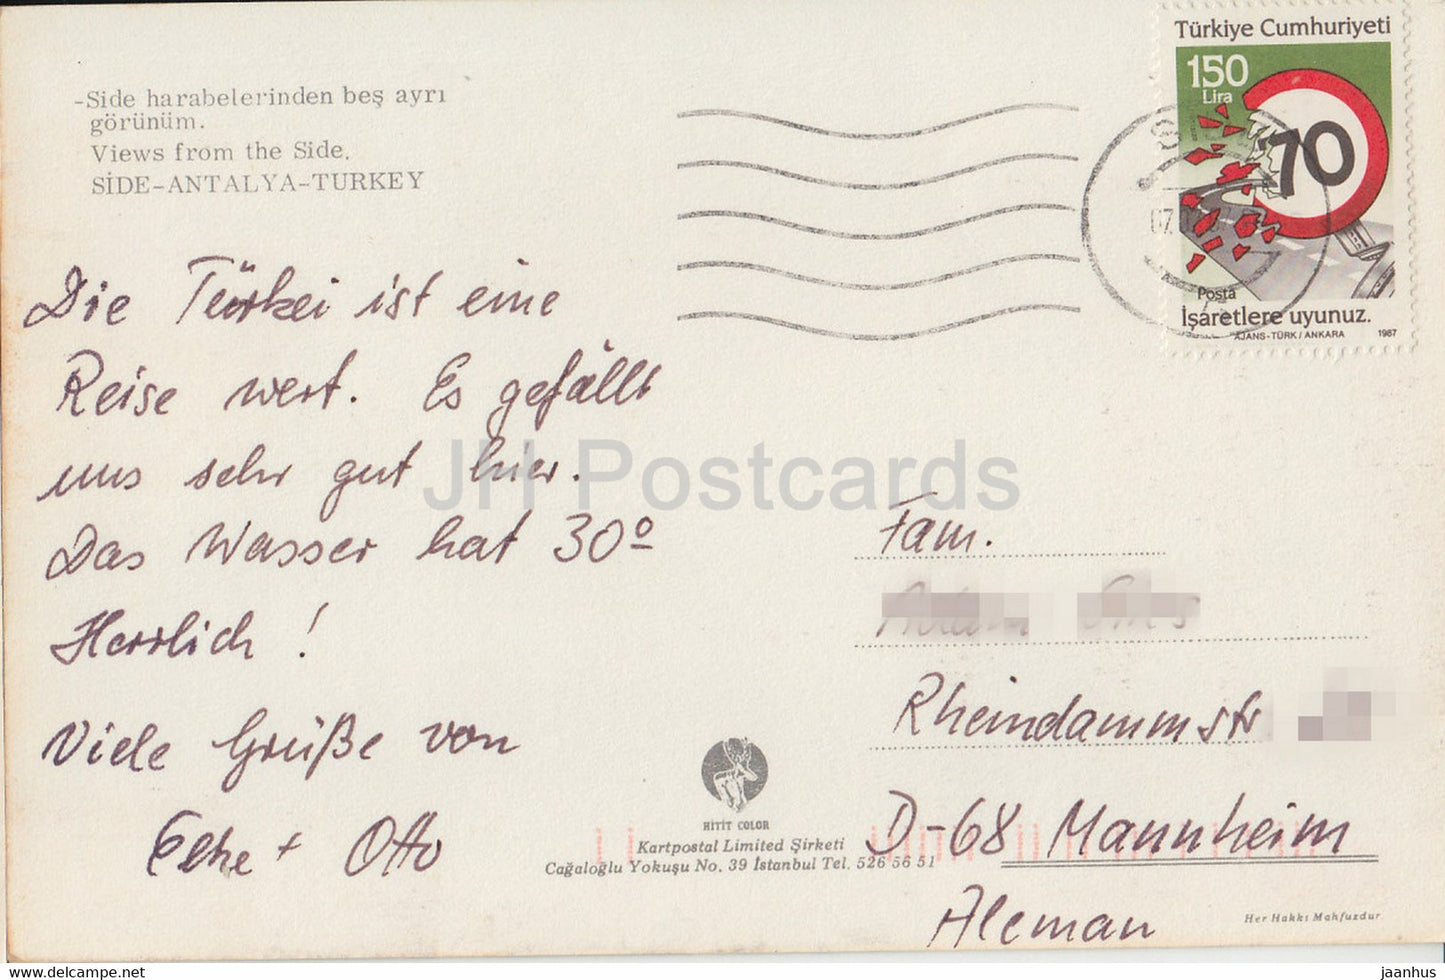 -Side harabelerinden beş ayrı
görünüm.
Views from the Side.
SİDE-ANTALYA-TURKEY
Türkiye Cumhuriyeti
150
Lira
70
Posta
İşaretlere uyunuz.
AJANS-TÜRK / ANKARA 1987
Die Türkei ist eine
Reise wert. Es gefällt
uns sehr gut hier.
Das Wasser hat 30º
Herrlich !
Viele Grüße von
+ Otto
JH Postcards
Fam.
Rheindammstr
D-68 Mannheim
Aleman
HİTİT COLOR
Kartpostal Limited Şirketi
Cağaloğlu Yokuşu No. 39 İstanbul Tel. 526 56 51
Her Hakkı Mahfuzdur
delcampe.net
jaanhus